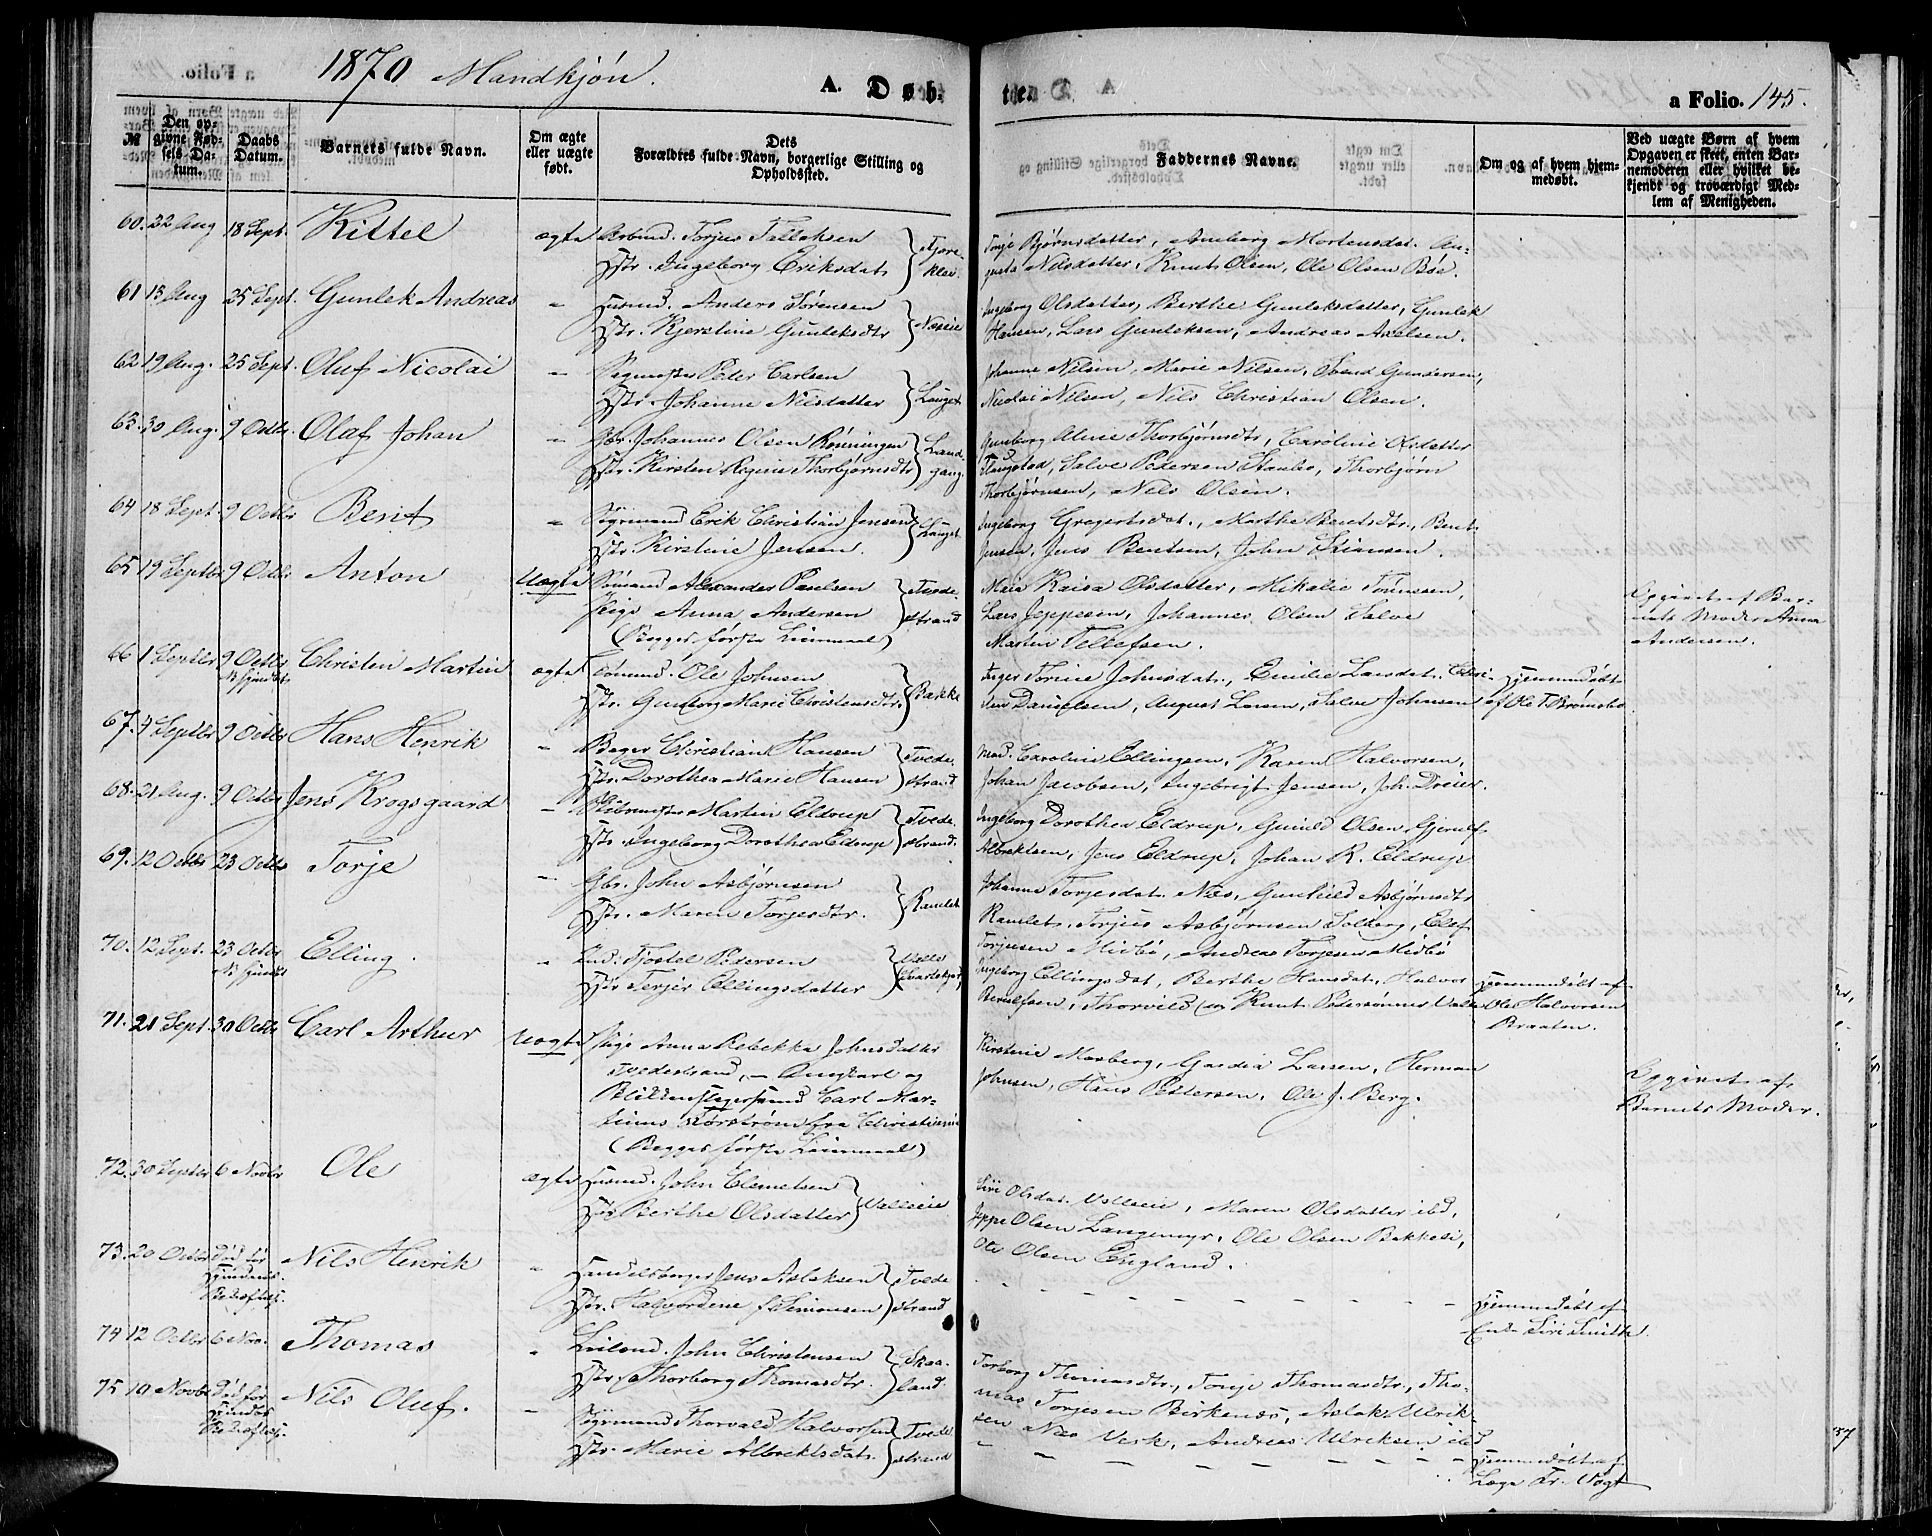 1870 Mandkjøn.
A. Døb-
te.
a Folio. 145.
№
Den op-
givne Fød-
sels Da-
tum.
Daabs
Datum.
Barnets fulde Navn.
Om ægte
eller uægte
født.
Dets
Forældres fulde Navn, borgerlige Stilling og
Opholdssted.
Faddernes Navne.
Om og af hvem hjem-
medøbt.
Ved uægte Børn af hvem
Opgaven er skeet, enten Bar-
nemoderen eller hvilket be-
kjendt og troværdigt Med-
lem af Menigheden.
60. 22 Aug 18 Sept. Kittel ægte Torjus Tallaksen
Hstr. Ingeborg Eriksdat.
Torje Bjørnsdatter, Aneborg Mortensdat. Au-
gusta Nilsdatter, Knut Olsen, Ole Olsen Bøe.
61 13 Aug 25 Sept. Gunlek Andreas " Husmd. Anders Sørensen
Hstr. Kjerstine Gunleksdtr
Ingeborg Olsdatter, Berthe Gunleksdatter, Gunlek
Hansen, Lars Gunleksen, Andreas Axelsen.
62 19 Aug. 25 Sept. Oluf Nicolai " Peder Carlsen
Hstr. Johanne Nilsdatter } Lauget
Johanne Nilsen, Marie Nilsen, Svend Gundersen,
Nicolai Nilsen, Nils Christian Olsen.
63. 30 Aug. 9 Octbr. Olaf Johan " Johannes Olsen Rønningen
Hstr. Kirsten Regine Thorbjørnsdtr } Land-
gang
Gunborg Aline Thorbjørnsdtr, Caroline Olsdatter
Salve Pedersen Staubø, Thorbjørn
Thorbjørnsen, Nils Olsen.
64 18 Sept. 9 Octbr Bent " Styrmand Erik Christian Jensen
Hstr. Kirstine Jensen. } Lauget
Ingeborg Gregertsdat., Marthe Bentsdtr., Bent
Jensen, Jens Bentsen, John Stiansen.
65 19 Septbr 9 Octbr Anton Uægte Sømand Alexander Paulsen
Pige Anna Andersen } Tvede-
strand
(Begges første Leiermaal)
Maia Kaisa Olsdatter, Mikalie Tønnesen,
Lars Jeppesen, Johannes Olsen Salve
Martin Tellefsen.
Opgivet af Bar-
nets Moder Anna
Andersen.
66 1 Septbr 9 Octbr Christen Martin ægte Sømand. Ole Johnsen
Hstr. Gunborg Marie Christensdtr. } Bakke
Inger Torine Johnsdat., Emilie Larsdat. Chri-
sten Danielsen, August Larsen, Salve Johnsen
Hjemmedøbt
af Ole T. Brømsbo
67. 4 Septbr 9 Octbr Hans Henrik " Bager Christian Hansen
Hstr. Dorothea Marie Hansen } Tvede-
strand
Mad. Caroline Ellingsen, Karen Halvorsen,
Johan Jacobsen, Ingebrigt Jensen, Joh. Dreier.
68. 21 Aug. 9 Octbr Jens Krogsgaard " Martin Eldrup
Hstr. Ingeborg Dorothea Eldrup } Tvede-
strand.
Ingeborg Dorothea Eldrup, Gunild Olsen, Gjerulf
Albrektsen, Jens Eldrup, Johan R. Eldrup
69. 12 Octbr 23 Octbr Torje " Gbr. John Asbjørnsen
Hstr. Maren Torjesdtr. } Ramlet
Johanne Torjesdat. Næs, Gunhild Asbjørnsdtr
Ramlet, Torjus Asbjørnsen Solberg, Olaf
Torjusen Midbø, Andreas Torjesen Midbø
70. 12 Sept. 23 Octbr Elling. " Ind. Tjostel Pedersen
Hstr. Terjer Ellingsdatter } Valle
Ingeborg Ellingsdat, Berthe Hansdat, Halvor
Berulfsen, Thorvild og Knut Pedersønner Valle
Hjemmedøbt af
Ole Halvorsen
Braaten.
71. 21 Sept. 30 Octbr Carl Arthur Uægte Pige Anna Rebekka Johnsdatter
Tvedestrand, - Ungkarl og
Blikkenslagersvend Carl Mar-
tinus Norstrøm fra Christiania
(Begges første Leiermaal)
Kirstine Morberg, Gardia Larsen, Herman
Johnsen, Hans Pedersen, Ole J. Berg.
Opgivet af
Barnets Moder.
72. 30 Septbr 6 Novbr Ole ægte Husmd. John Clemetsen
Hstr Berthe Olsdatter } Valleeie
Siri Olsdat. Valleeie, Maren Olsdatter ibd,
Jeppe Olsen Langemyr, Ole Olsen Bakkeli,
Ole Olsen England.
73. 20 Octbr Død før Nils Henrik " Handelsborger Jens Aslaksen
Hstr. Halvordine f. Simonsen } Tvede
strand
Hjemmedøbt af
Enke Siri Smith.
74 12 Octbr 6 Nov. Thomas " Leilend. John Christensen
Hstr. Thorborg Thomasdtr. } Skaa-
land.
Torborg Thomasdtr., Torje Thomasdtr., Tho-
mas Torjesen Birkenæs, Aslak Ulrik-
sen Næs Verk, Andreas Ulriksen ibd
75 10 Novbr Død før Nils Oluf. " Styrmand Thorvald Halvorsen
Hstr. Marie Albrektsdat. } Tvede
strand
Hjemmedøbt af
Læge Fr. Vogt